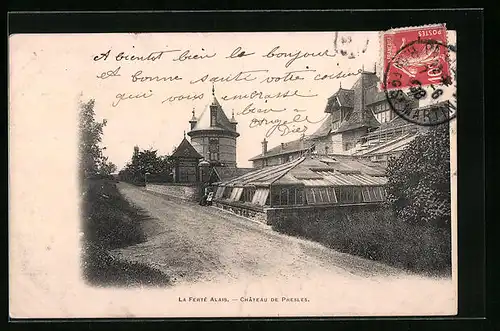 A bientôt bien le bonjour
A bonne santé votre cousine
qui vous embrasse
bien à
POSTES
10
LA FERTÉ ALAIS. — CHÂTEAU DE PRESLES.